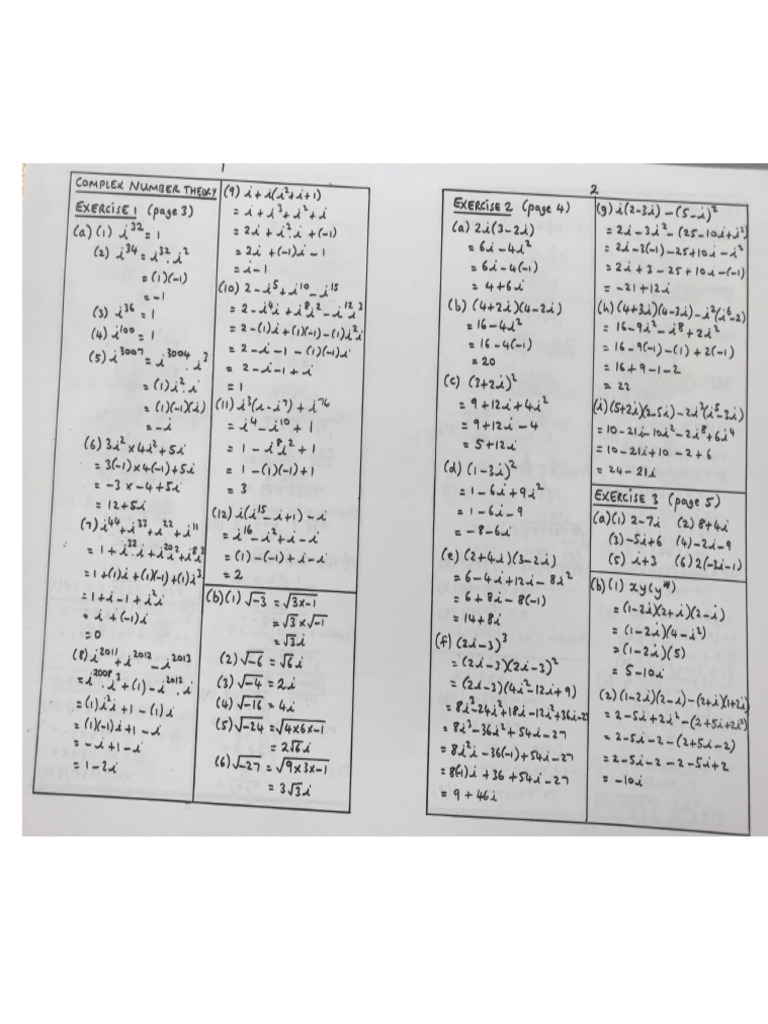 1
COMPLEX NUMBER THEORY
EXERCISE 1 (page 3)
(a) (1) i^32 = 1
(2) i^34 = i^32 . i^2
= (1)(-1)
= -1
(3) i^36 = 1
(4) i^100 = 1
(5) i^3007 = i^3004 . i^3
= (1) i^2 . i
= (1)(-1)(i)
= -i
(6) 3i^2 × 4i^2 + 5i
= 3(-1) × 4(-1) + 5i
= -3 × -4 + 5i
= 12 + 5i
(7) i^44 + i^33 + i^22 + i^11
= 1 + i^32 . i + i^20 i^2 + i^8 i^3
= 1 + (1)i + (1)(-1) + (1)i^3
= 1 + i - 1 + i^2 i
= i + (-1)i
= 0
(8) i^2011 + i^2012 - i^2013
= i^2008 . i^3 + (1) - i^2012 . i
= (1) i^2 i + 1 - (1)i
= (1)(-1)i + 1 - i
= -i + 1 - i
= 1 - 2i
(9) i + i(i^2 + i + 1)
= i + i^3 + i^2 + i
= 2i + i^2 . i + (-1)
= 2i + (-1)i - 1
= i - 1
(10) 2 - i^5 + i^10 - i^15
= 2 - i^4 i + i^8 i^2 - i^12 i^3
= 2 - (1)i + (1)(-1) - (1)i^2 i
= 2 - i - 1 - (1)(-1)i
= 2 - i - 1 + i
= 1
(11) i^3(i - i^7) + i^76
= i^4 - i^10 + 1
= 1 - i^8 i^2 + 1
= 1 - (1)(-1) + 1
= 3
(12) i(i^15 - i + 1) - i
= i^16 - i^2 + i - i
= (1) - (-1) + i - i
= 2
(b) (1) √-3 = √3 x -1
= √3 x √-1
= √3 i
(2) √-6 = √6 i
(3) √-4 = 2i
(4) √-16 = 4i
(5) √-24 = √4 x 6 x -1
= 2√6 i
(6) √-27 = √9 x 3 x -1
= 3√3 i
2
EXERCISE 2 (page 4)
(a) 2i(3 - 2i)
= 6i - 4i^2
= 6i - 4(-1)
= 4 + 6i
(b) (4 + 2i)(4 - 2i)
= 16 - 4i^2
= 16 - 4(-1)
= 20
(c) (3 + 2i)^2
= 9 + 12i + 4i^2
= 9 + 12i - 4
= 5 + 12i
(d) (1 - 3i)^2
= 1 - 6i + 9i^2
= 1 - 6i - 9
= -8 - 6i
(e) (2 + 4i)(3 - 2i)
= 6 - 4i + 12i - 8i^2
= 6 + 8i - 8(-1)
= 14 + 8i
(f) (2i - 3)^3
= (2i - 3)(2i - 3)^2
= (2i - 3)(4i^2 - 12i + 9)
= 8i^3 - 24i^2 + 18i - 12i^2 + 36i - 27
= 8i^3 - 36i^2 + 54i - 27
= 8i^2 i - 36(-1) + 54i - 27
= 8(-1)i + 36 + 54i - 27
= 9 + 46i
(g) i(2 - 3i) - (5 - i)^2
= 2i - 3i^2 - (25 - 10i + i^2)
= 2i - 3(-1) - 25 + 10i - i^2
= 2i + 3 - 25 + 10i - (-1)
= -21 + 12i
(h) (4 + 3i)(4 - 3i) - i^2(i^6 - 2)
= 16 - 9i^2 - i^8 + 2i^2
= 16 - 9(-1) - (1) + 2(-1)
= 16 + 9 - 1 - 2
= 22
(i) (5 + 2i)(2 - 5i) - 2i^3(i^5 - 3i)
= 10 - 21i - 10i^2 - 2i^8 + 6i^4
= 10 - 21i + 10 - 2 + 6
= 24 - 21i
EXERCISE 3 (page 5)
(a) (1) 2 - 7i (2) 8 + 4i
(3) -5i + 6 (4) -2i - 9
(5) i + 3 (6) 2(-3i - 1)
(b) (1) xy(y*)
= (1 - 2i)(2 + i)(2 - i)
= (1 - 2i)(4 - i^2)
= (1 - 2i)(5)
= 5 - 10i
(2) (1 - 2i)(2 - i) - (2 + i)(1 + 2i)
= 2 - 5i + 2i^2 - (2 + 5i + 2i^2)
= 2 - 5i - 2 - (2 + 5i - 2)
= 2 - 5i - 2 - 2 - 5i + 2
= -10i